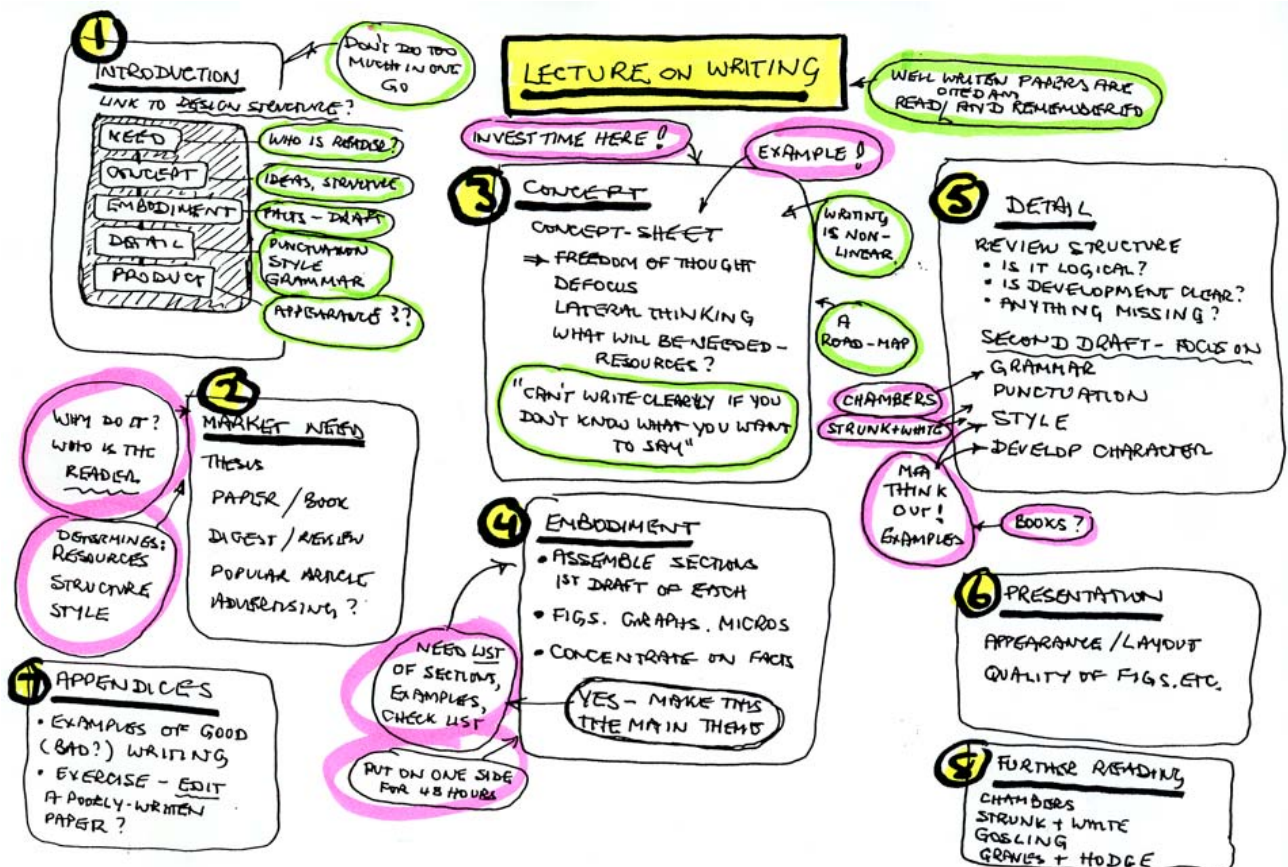 LECTURE ON WRITING
WELL WRITEN PAPERS ARE
CITED AND
READ/ AND REMEMBERED
1
INTRODUCTION
LINK TO DESIGN STRUCTURE?
DON'T DO TOO
MUCH IN ONE
GO
NEED
WHO IS READER?
CONCEPT
IDEAS, STRUCTURE
EMBODIMENT
FACTS - DRAFT
DETAIL
PUNCTUATION
STYLE
GRAMMAR
PRODUCT
APPEARANCE??
2
MARKET NEED
THESIS
PAPER / BOOK
DIGEST / REVIEW
POPULAR ARTICLE
ADVERTISING?
WHY DO IT?
WHO IS THE
READER
DETERMINES:
RESOURCES
STRUCTURE
STYLE
3
CONCEPT
INVEST TIME HERE!
EXAMPLE!
CONCEPT-SHEET
⇒ FREEDOM OF THOUGHT
DEFOCUS
LATERAL THINKING
WHAT WILL BE NEEDED-
RESOURCES?
"CAN'T WRITE CLEARLY IF YOU
DON'T KNOW WHAT YOU WANT
TO SAY"
WRITING
IS NON-
LINEAR
A
ROAD-MAP
4
EMBODIMENT
• ASSEMBLE SECTIONS
1ST DRAFT OF EACH
• FIGS. GRAPHS. MICROS
• CONCENTRATE ON FACTS
YES - MAKE THIS
THE MAIN THEME
NEED LIST
OF SECTIONS,
EXAMPLES,
CHECK LIST
PUT ON ONE SIDE
FOR 48 HOURS
5
DETAIL
REVIEW STRUCTURE
• IS IT LOGICAL?
• IS DEVELOPMENT CLEAR?
• ANYTHING MISSING?
SECOND DRAFT - FOCUS ON
GRAMMAR
PUNCTUATION
STYLE
DEVELOP CHARACTER
CHAMBERS
STRUNK+WHITE
MFA
THINK
OUT!
EXAMPLES
BOOKS?
6
PRESENTATION
APPEARANCE / LAYOUT
QUALITY OF FIGS. ETC.
7
APPENDICES
• EXAMPLES OF GOOD
(BAD?) WRITING
• EXERCISE - EDIT
A POORLY-WRITTEN
PAPER?
8
FURTHER READING
CHAMBERS
STRUNK + WHITE
GOSLING
GRAVES + HODGE